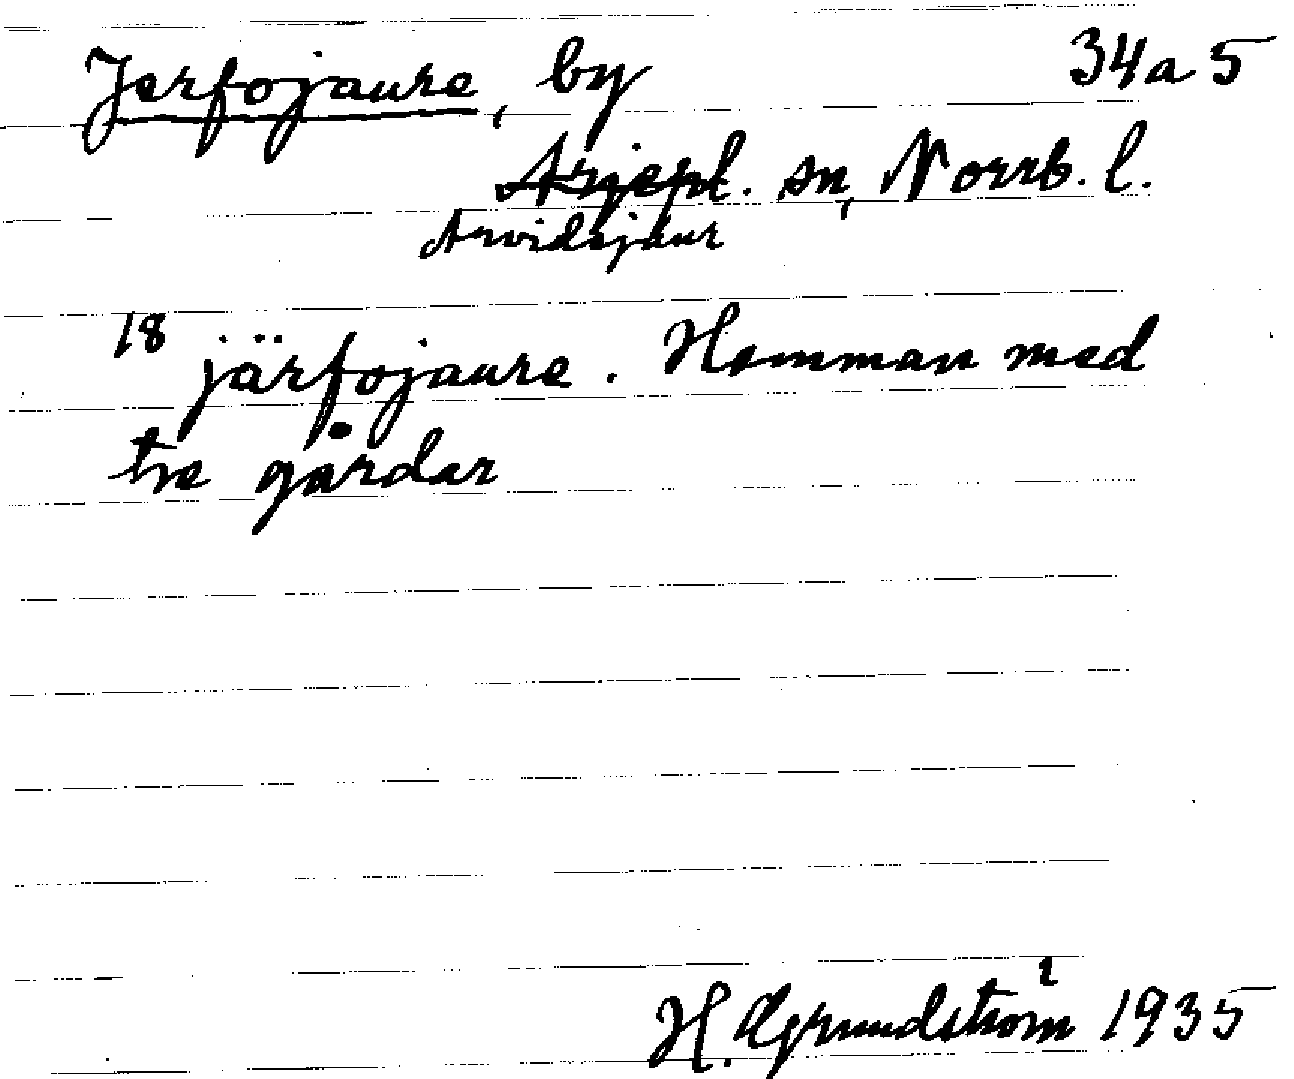 Jerfojaure, by 34a5
Arjepl. sn, Norrb. l.
Arvidsjaur
18 järfojaure. Hemman med
tre gårdar
H. Grundström 1935